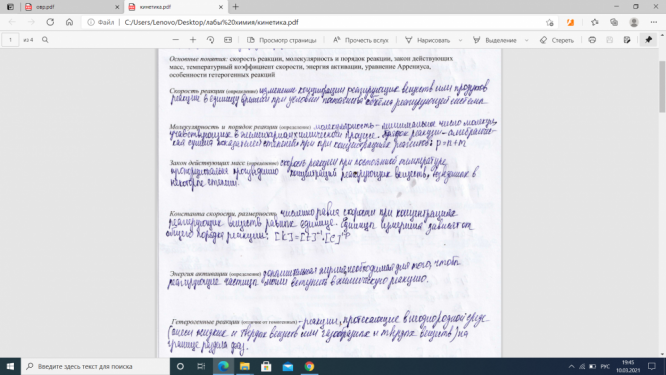 овр.pdf
кинетика.pdf
Файл
C:/Users/Lenovo/Desktop/лабы%20химия/кинетика.pdf
1 из 4
Просмотр страницы
Прочесть вслух
Нарисовать
Выделение
Стереть
Основные понятия: скорость реакции, молекулярность и порядок реакции, закон действующих
масс, температурный коэффициент скорости, энергия активации, уравнение Аррениуса,
особенности гетерогенных реакций
Скорость реакции (определение) изменение концентрации реагирующих веществ или продуктов
реакции в единицу времени при условии постоянства объема реагирующей системы.
Молекулярность и порядок реакции (определения) молекулярность - минимальное число молекул,
участвующих в элементарном химическом процессе. Порядок реакции -
сумма показателей степеней при концентрациях p=n+m
Закон действующих масс (определение) скорость реакции при постоянной температуре
пропорциональна произведению концентраций реагирующих веществ, взятых в
некоторых степенях.
Константа скорости, размерность численно равна скорости при концентрациях
реагирующих веществ равных единице. единица измерения зависит от
общего порядка реакции: [k]=[t]⁻¹·[C]
Энергия активации (определение) необходимая для того, чтобы
реагирующие частицы могли вступить в химическую реакцию.
Гетерогенные реакции - реакции, протекающие в неоднородной среде
жидких и твердых веществ или газообразных и твердых веществ) на
границе раздела фаз.
Введите здесь текст для поиска
РУС
19:45
10.03.2021